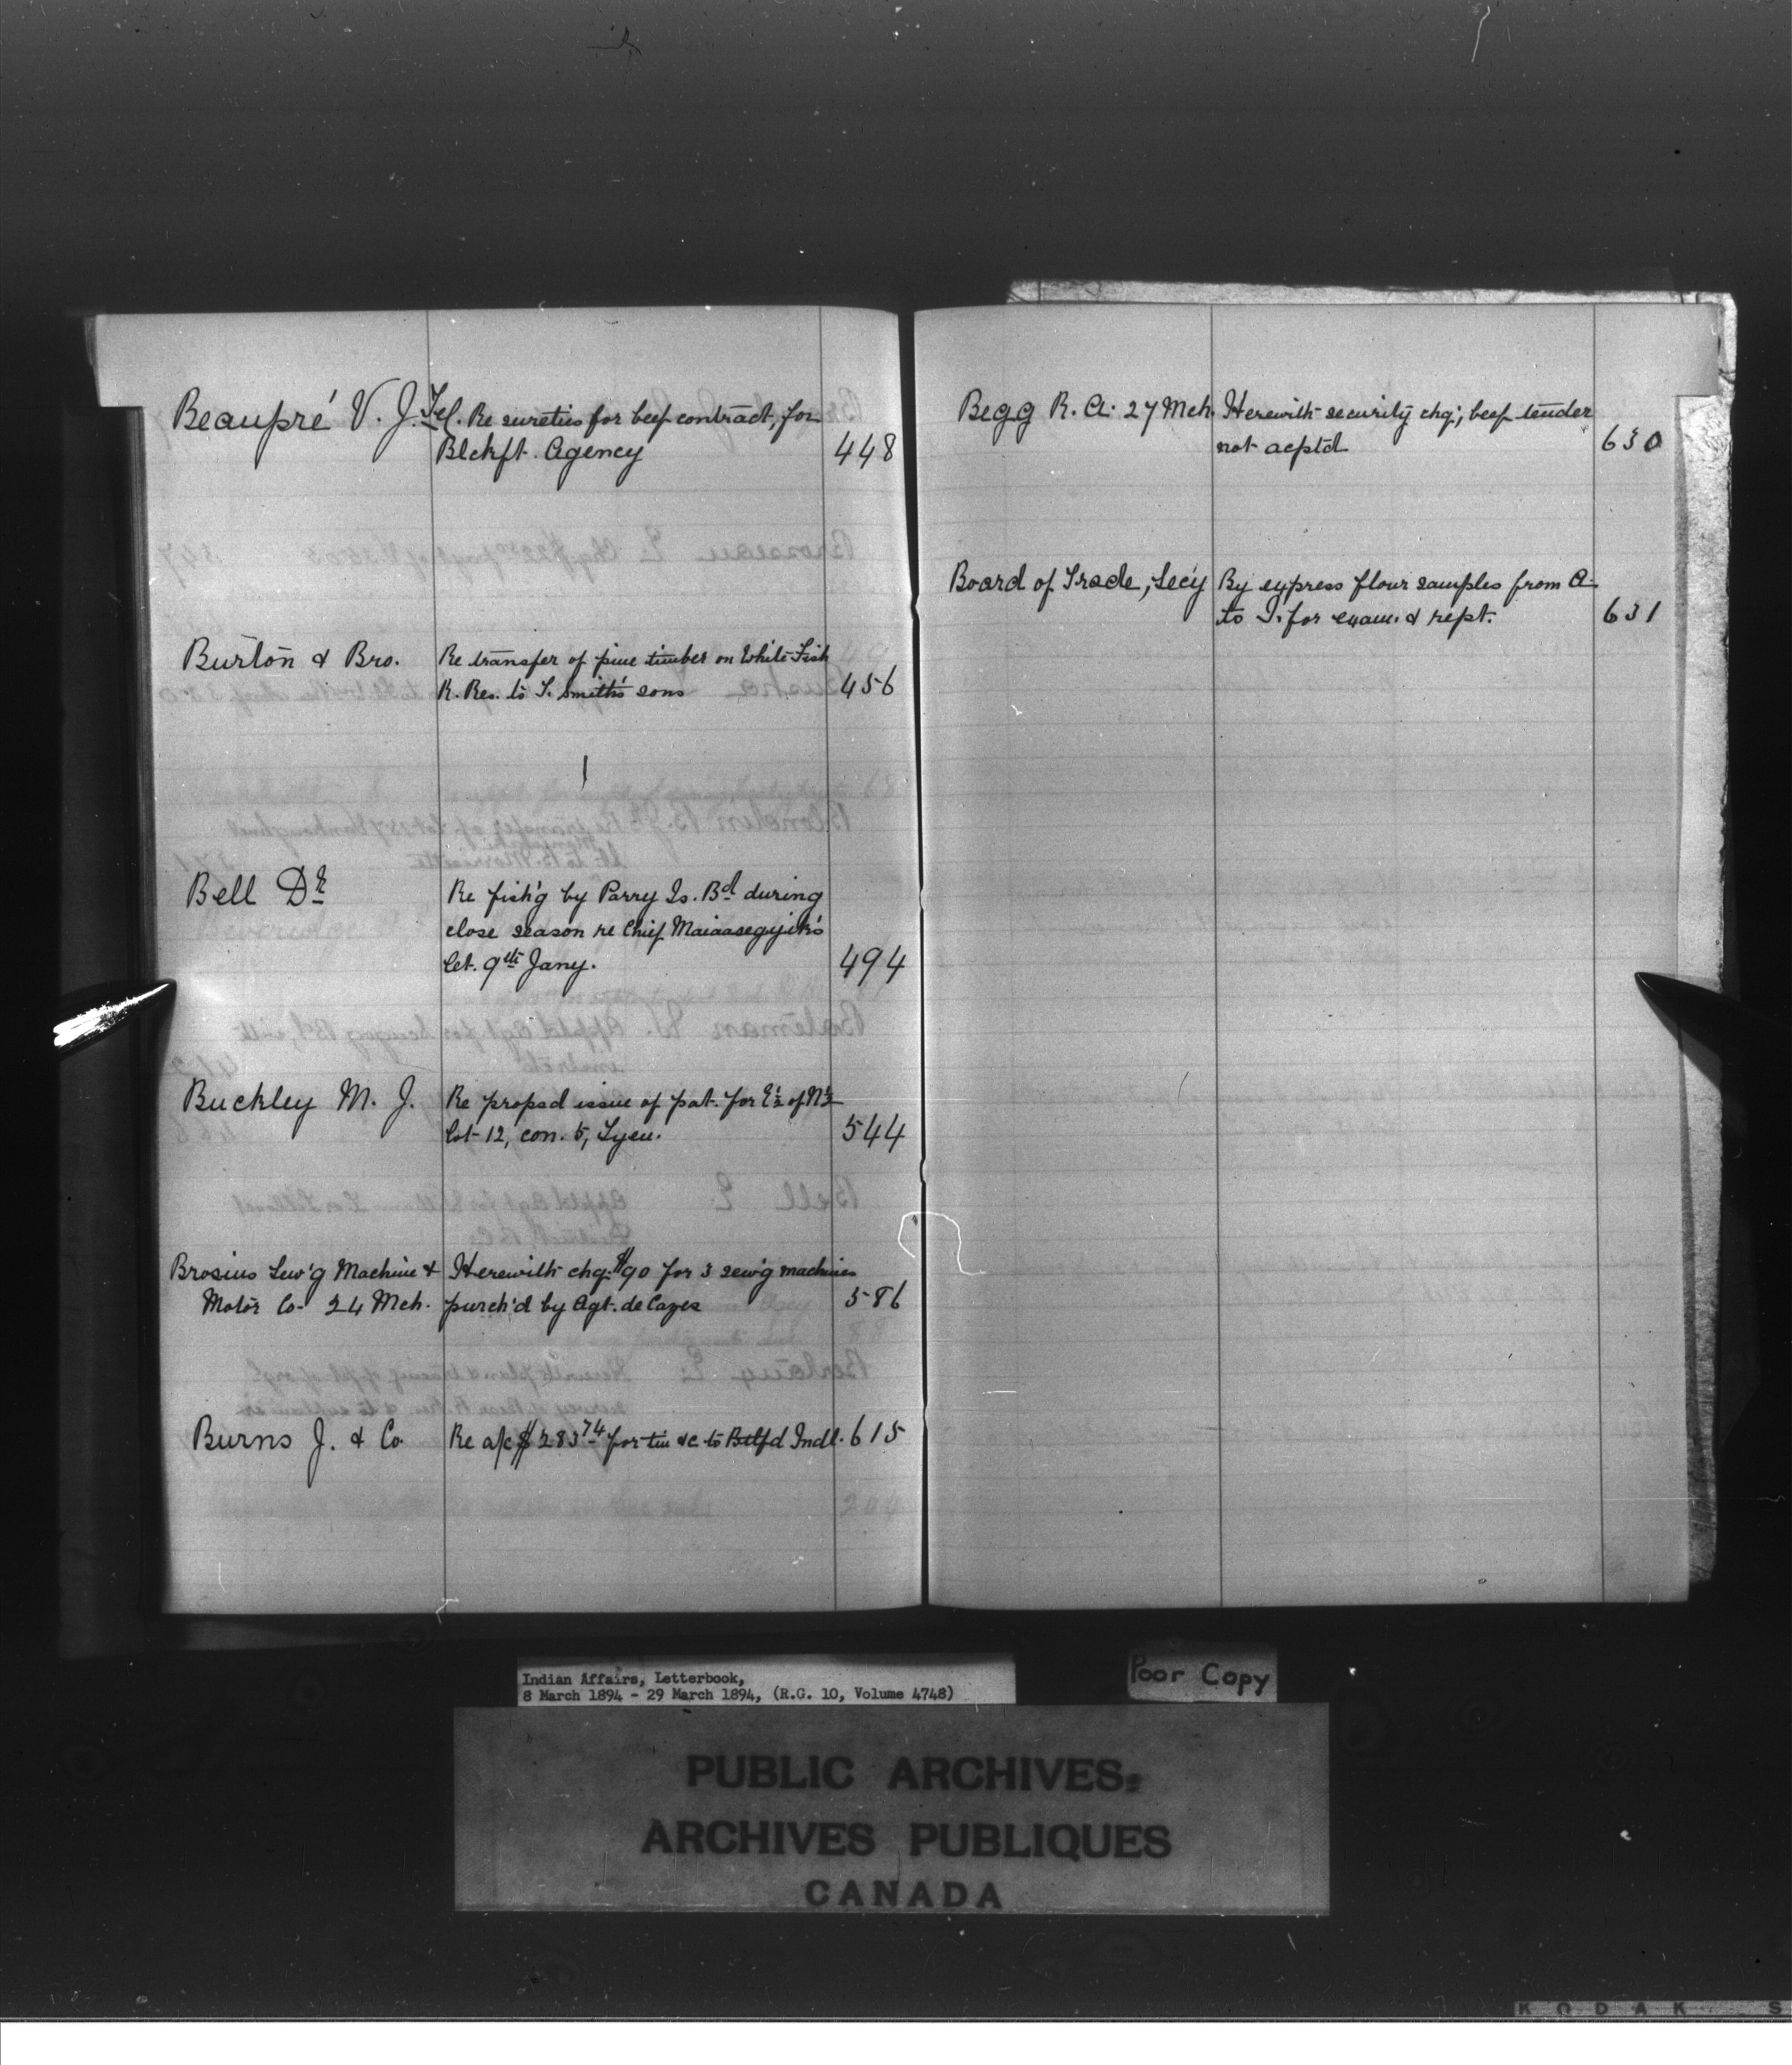 Beaupré V. J. Tel. Re sureties for beef contract, for
Blckft. Agency 448
Burton & Bro. Re transfer of pine timber on White Fish
R. Res. to T. Smith's sons 456
Bell Dr Re fish'g by Parry Is. Bd during
close season re Chief Maiaasegijik's
let. 9th Jany. 494
Buckley M. J. Re propsd issue of pat. for E½ of N½
lot 12, con. 5, 544
Brosius Sew'g Machine & Herewith chq. $90 for 3 sew'g machines
Motor Co. 24 Mch. purch'd by Agt. de Cazes 586
Burns J. & Co. Re a/c $283 74 for tin &c to Btlfd Indl. 615
Begg R. A. 27 Mch. Herewith security chq; beef tender
not acptd 630
Board of Trade, Sec'y By express flour samples from A
to I. for exam. & rept. 631
Indian Affairs, Letterbook,
8 March 1894 - 29 March 1894, (R.G. 10, Volume 4748)
Poor Copy
PUBLIC ARCHIVES
ARCHIVES PUBLIQUES
CANADA
KODAK S